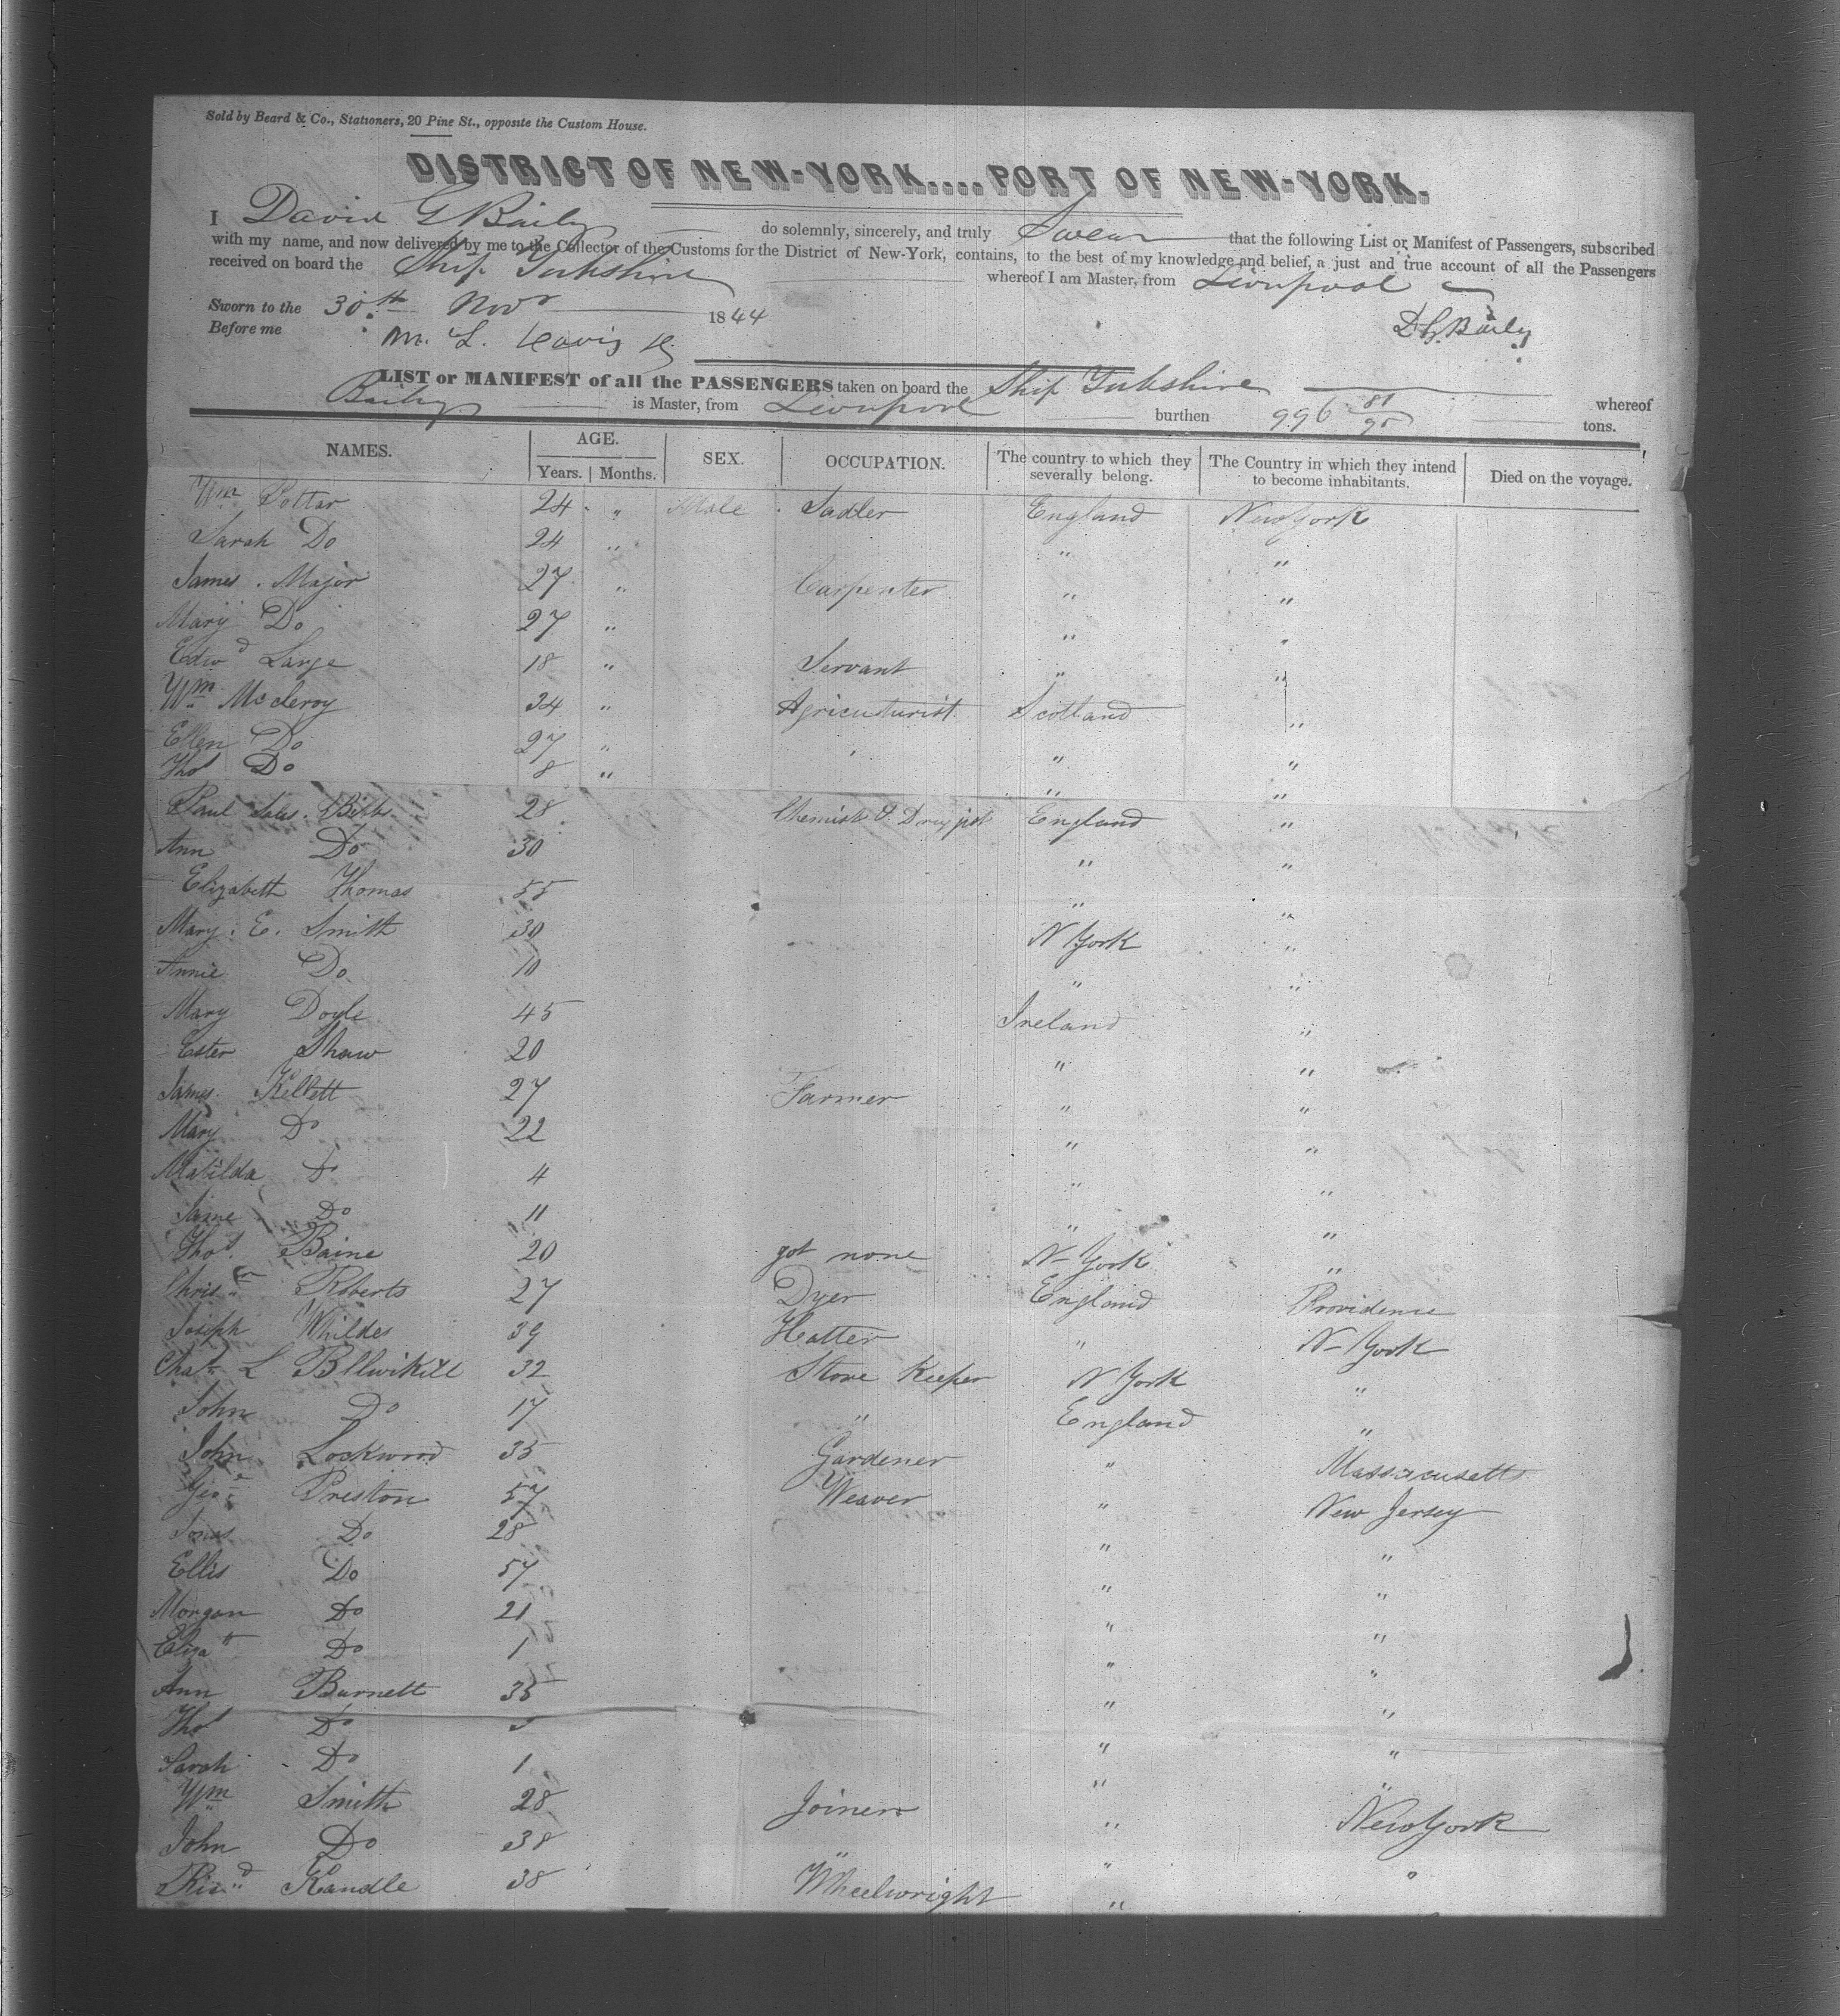 Sold by Beard & Co., Stationers, 20 Pine St., opposite the Custom House.
DISTRICT OF NEW-YORK....PORT OF NEW-YORK.
I David G Baily do solemnly, sincerely, and truly Swear that the following List or Manifest of Passengers, subscribed
with my name, and now delivered by me to the Collector of the Customs for the District of New-York, contains, to the best of my knowledge and belief, a just and true account of all the Passengers
received on board the Ship Yorkshire whereof I am Master, from Liverpool
Sworn to the 30th Novr 1844
D G Baily
Before me M. L. Davis
LIST or MANIFEST of all the PASSENGERS taken on board the Ship Yorkshire whereof
Baily is Master, from Liverpool burthen 996 81/95 tons.
NAMES. AGE. Years. Months. SEX. OCCUPATION. The country to which they severally belong. The Country in which they intend to become inhabitants. Died on the voyage.
Wm Pottar 24 " Male Sadler England New York
Sarah Do 24 " " "
James Major 27 " Carpenter " "
Mary Do 27 " " "
Edwd Large 18 " Servant " "
Wm McCleroy 34 " Agricuturist Scotland "
Ellen Do 27 " " "
Thos Do 8 " " "
Paul 28 Chemist & Drugist England "
Ann Do 30 " "
Elizabeth Thomas 55 " "
Mary E. Smith 30 N York "
Annie Do 10 " "
Mary Doyle 45 Ireland "
Ester Shaw 20 " "
James Kellett 27 Farmer " "
Mary Do 22 " "
Matilda Do 4 " "
Jame Do 11 " "
Thos Baine 20 got none N-York "
Chrisr Roberts 27 Dyer England Providence
Joseph Whildes 39 Hatter " N-York
Chas L 32 Store Keeper N York "
John Do 17 " England "
John Lockwood 35 Gardener " Massacusetts
Geoe Preston 57 Weaver " New Jersey
Jonas Do 28 " "
Ellis Do 57 " "
Morgan Do 21 " "
Eliza Do 1 " "
Ann Burnett 35 " "
Thos Do " "
Sarah Do 1 " "
Wm Smith 28 Joiner " New York
John Do 38 " " "
Ricd Kandle 38 Wheelwright "